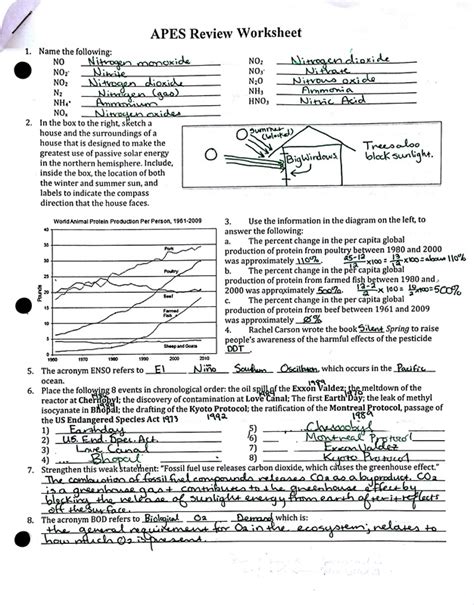 APES Review Worksheet
1. Name the following:
NO Nitrogen monoxide NO₂ Nitrogen dioxide
NO₂⁻ Nitrite NO₃⁻ Nitrate
NO₂ Nitrogen dioxide N₂O Nitrous oxide
N₂ Nitrogen (gas) NH₃ Ammonia
NH₄⁺ Ammonium HNO₃ Nitric Acid
NOₓ Nitrogen oxides
2. In the box to the right, sketch a
house and the surroundings of a
house that is designed to make the
greatest use of passive solar energy
in the northern hemisphere. Include,
inside the box, the location of both
the winter and summer sun, and
labels to indicate the compass
direction that the house faces.
Summer
(blocked)
Big Windows
Trees also
block sunlight.
World Animal Protein Production Per Person, 1961-2009
Pounds
40
35
30
25
20
15
10
5
0
1960 1970 1980 1990 2000 2010
Pork
Poultry
Beef
Farmed
Fish
Sheep and Goats
3. Use the information in the diagram on the left, to
answer the following:
a. The percent change in the per capita global
production of protein from poultry between 1980 and 2000
was approximately 110% 25-12/12 x100 = 13/12 x100 = about 110%
b. The percent change in the per capita global
production of protein from farmed fish between 1980 and
2000 was approximately 500%. 12-2/2 x 100 = 10/2 x100 = 500%
c. The percent change in the per capita global
production of protein from beef between 1961 and 2009
was approximately 0%
4. Rachel Carson wrote the book Silent Spring to raise
people's awareness of the harmful effects of the pesticide
DDT.
5. The acronym ENSO refers to El Niño Southern Oscillation, which occurs in the Pacific
ocean.
6. Place the following 8 events in chronological order: the oil spill of the Exxon Valdez; the meltdown of the
reactor at Chernobyl; the discovery of contamination at Love Canal; The first Earth Day; the leak of methyl
isocyanate in Bhopal; the drafting of the Kyoto Protocol; the ratification of the Montreal Protocol, passage of
the US Endangered Species Act 1973
1) Earthday 5) Chernobyl
2) U.S. End. Spec. Act. 6) Montreal Protocol
3) Love Canal 7) Exxon Valdez
4) Bhopal 8) Kyoto Protocol
7. Strengthen this weak statement: "Fossil fuel use releases carbon dioxide, which causes the greenhouse effect."
The combustion of fossil fuel compounds releases CO₂ as a byproduct. CO₂
is a greenhouse gas + contributes to the greenhouse effect by
blocking the release of sunlight energy from earth after it reflects
off the surface.
8. The acronym BOD refers to Biological O₂ Demand which is:
the general requirement for O₂ in the ecosystem; relates to
how much O₂ is present.